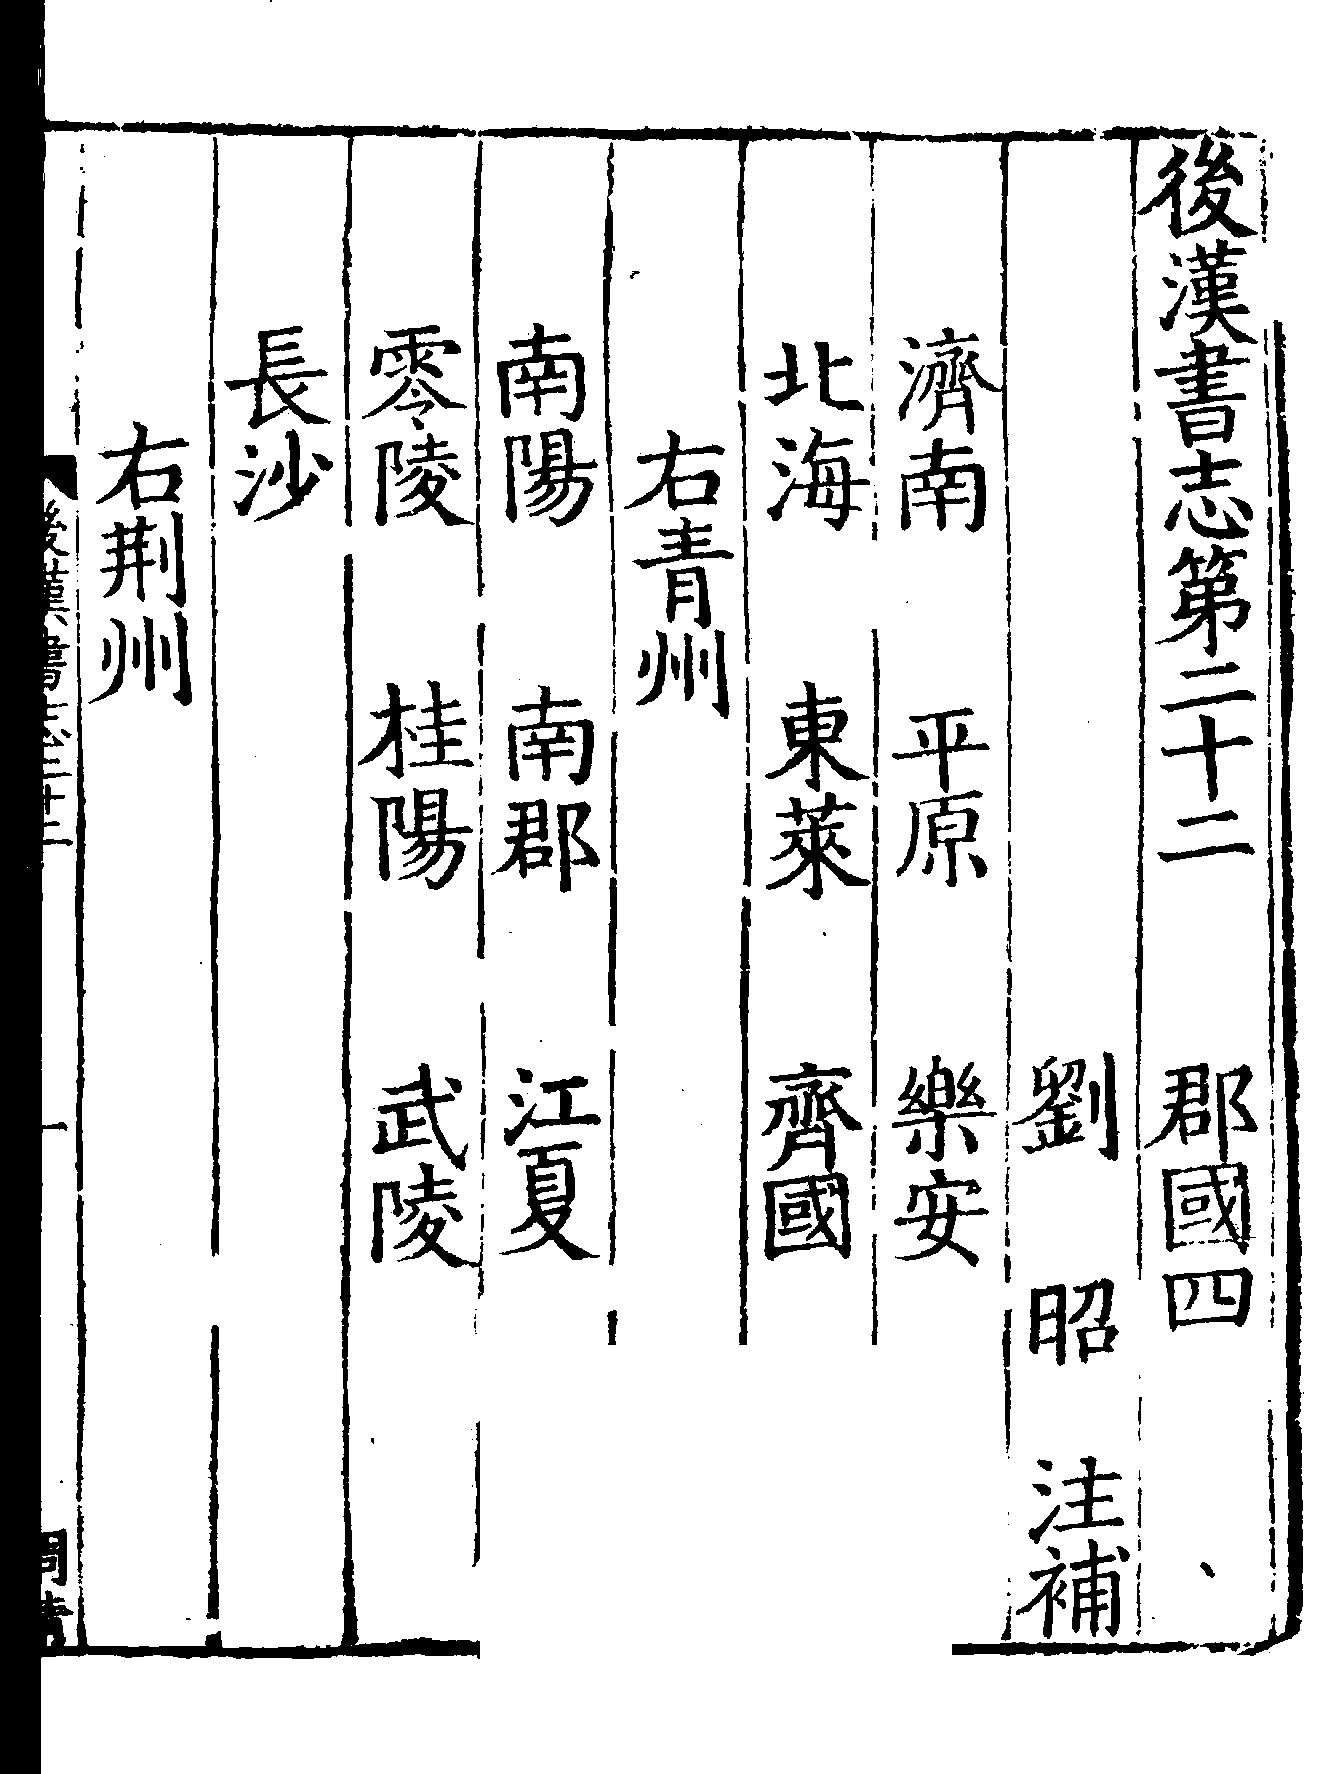 後漢書志第二十二 郡國四
劉 昭 注補
濟南 平原 樂安
北海 東萊 齊國
右青州
南陽 南郡 江夏
零陵 桂陽 武陵
長沙
右荆州
後漢書志二十二
一